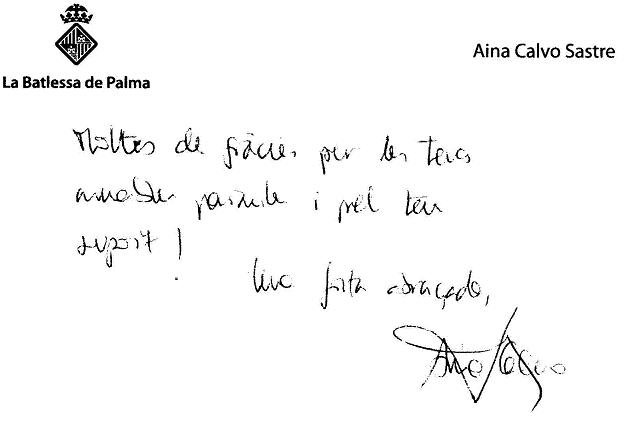 La Batlessa de Palma
Aina Calvo Sastre
Moltes de gràcies per les teves
amables paraules i pel teu
suport!
Una forta abraçada,
Aina Calvo